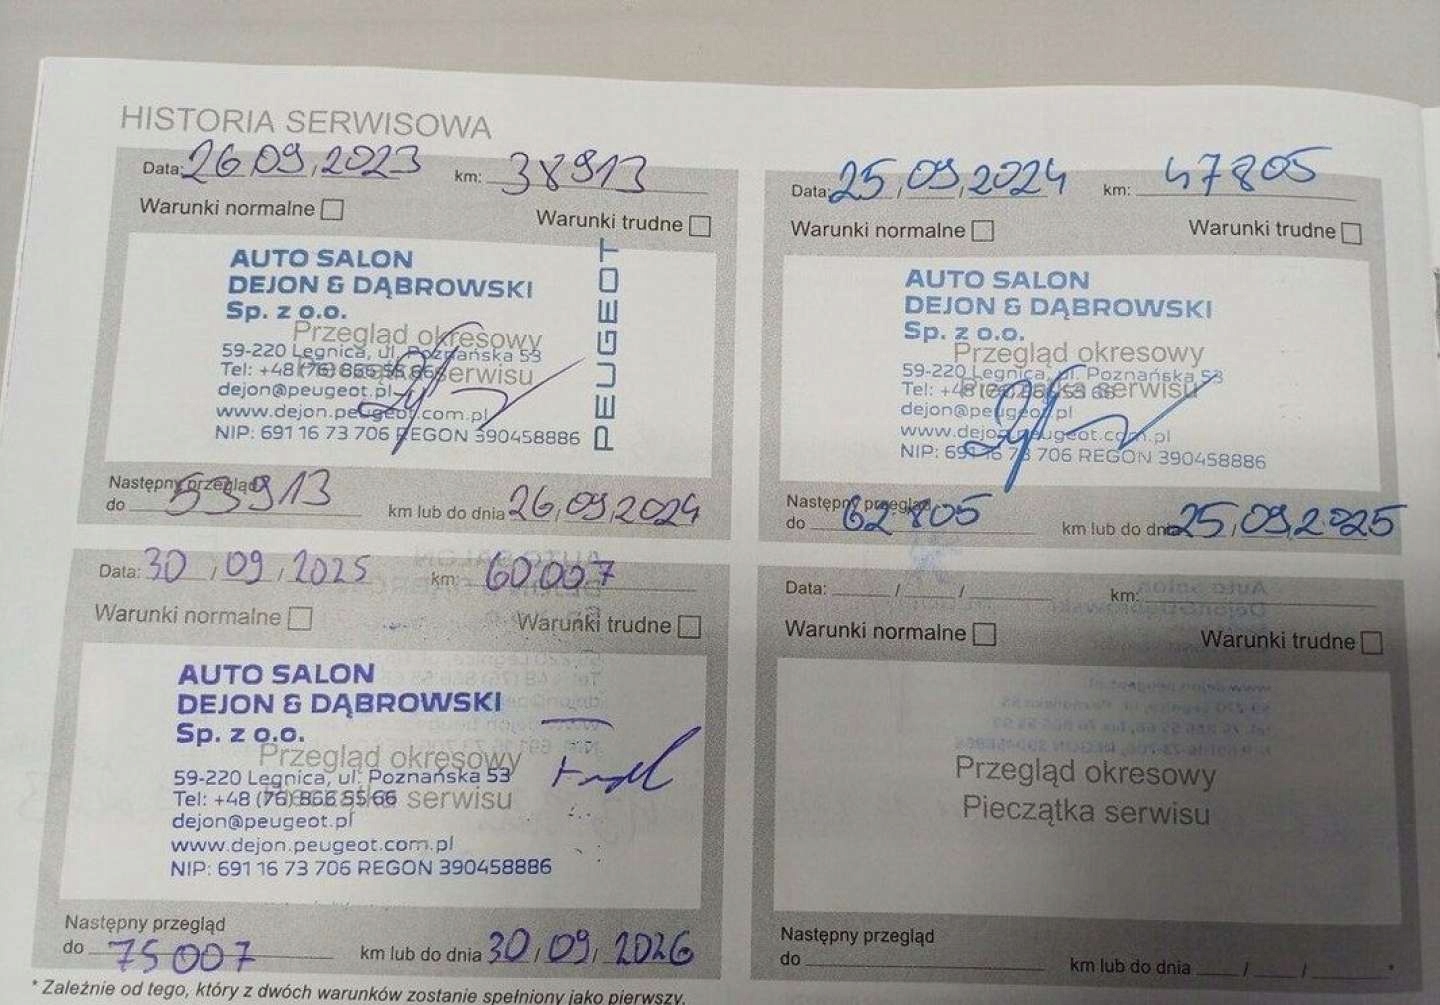 HISTORIA SERWISOWA
Data: 26.09.2023 km: 38913
Warunki normalne Warunki trudne
AUTO SALON
DEJON & DĄBROWSKI
Sp. z o.o.
Przegląd okresowy
59-220 Legnica, ul. Poznańska 53
Tel: +48 (76) 866 55 66 serwisu
dejon@peugeot.pl
www.dejon.peugeot.com.pl
NIP: 691 16 73 706 REGON 390458886
PEUGEOT
Następny przegląd
do 53913 km lub do dnia 26.09.2024
Data: 25.09.2024 km: 47805
Warunki normalne Warunki trudne
AUTO SALON
DEJON & DĄBROWSKI
Sp. z o.o.
Przegląd okresowy
59-220 Legnica, ul. Poznańska 53
Pieczątka serwisu
Tel: +48
dejon@peugeot.pl
www.dejon.peugeot.com.pl
NIP: 691 16 73 706 REGON 390458886
Następny przegląd
do 62805 km lub do dnia 25.09.2025
Data: 30/09/2025 km: 60007
Warunki normalne Warunki trudne
AUTO SALON
DEJON & DĄBROWSKI
Sp. z o.o.
Przegląd okresowy
59-220 Legnica, ul. Poznańska 53
Tel: +48 (76) 866 55 66 serwisu
dejon@peugeot.pl
www.dejon.peugeot.com.pl
NIP: 691 16 73 706 REGON 390458886
Następny przegląd
do 75007 km lub do dnia 30/09/2026
Data: / / km:
Warunki normalne Warunki trudne
Przegląd okresowy
Pieczątka serwisu
Następny przegląd
do km lub do dnia / / *
* Zależnie od tego, który z dwóch warunków zostanie spełniony jako pierwszy.